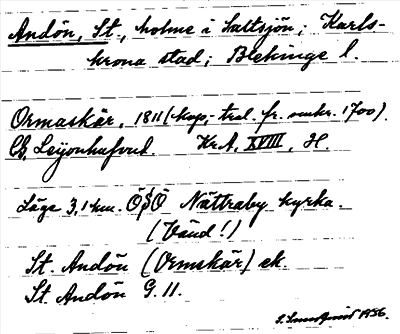 Andön, St., holme i Saltsjön; Karls-
krona stad; Blekinge l.
Ormaskär, 1811 (kop.-tral. fr. omkr. 1700).
Leijonhufvud. Kr.A, XVIII, H.
Läge 3,1 km. ÖSÖ Nättraby kyrka.
(Vänd!)
St. Andön (Ormskär) ek.
St. Andön G. 11.
1956.